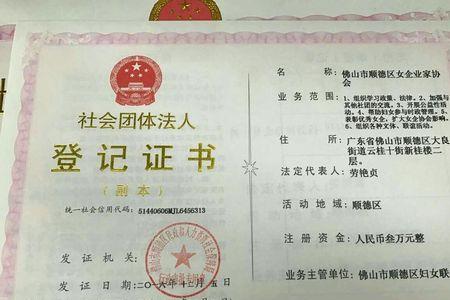 社会团体法人
登记证书
（副本）
统一社会信用代码：51440606MJL6456313
发证机关：
二〇一六年十二月五日
名称：佛山市顺德区女企业家协会
业务范围：1、组织学习政策、法律。2、加强与
其他社团的交流。3、开展公益性活
动。4、帮助妇女参与时政管理。5、
表彰优秀女企，扩大女企协会影响。
6、组织各种文体、联谊活动。
住所：广东省佛山市顺德区大良
街道云桂十街新桂楼二
层。
法定代表人：劳艳贞
活动地域：顺德区
注册资金：人民币叁万元整
业务主管单位：佛山市顺德区妇女联